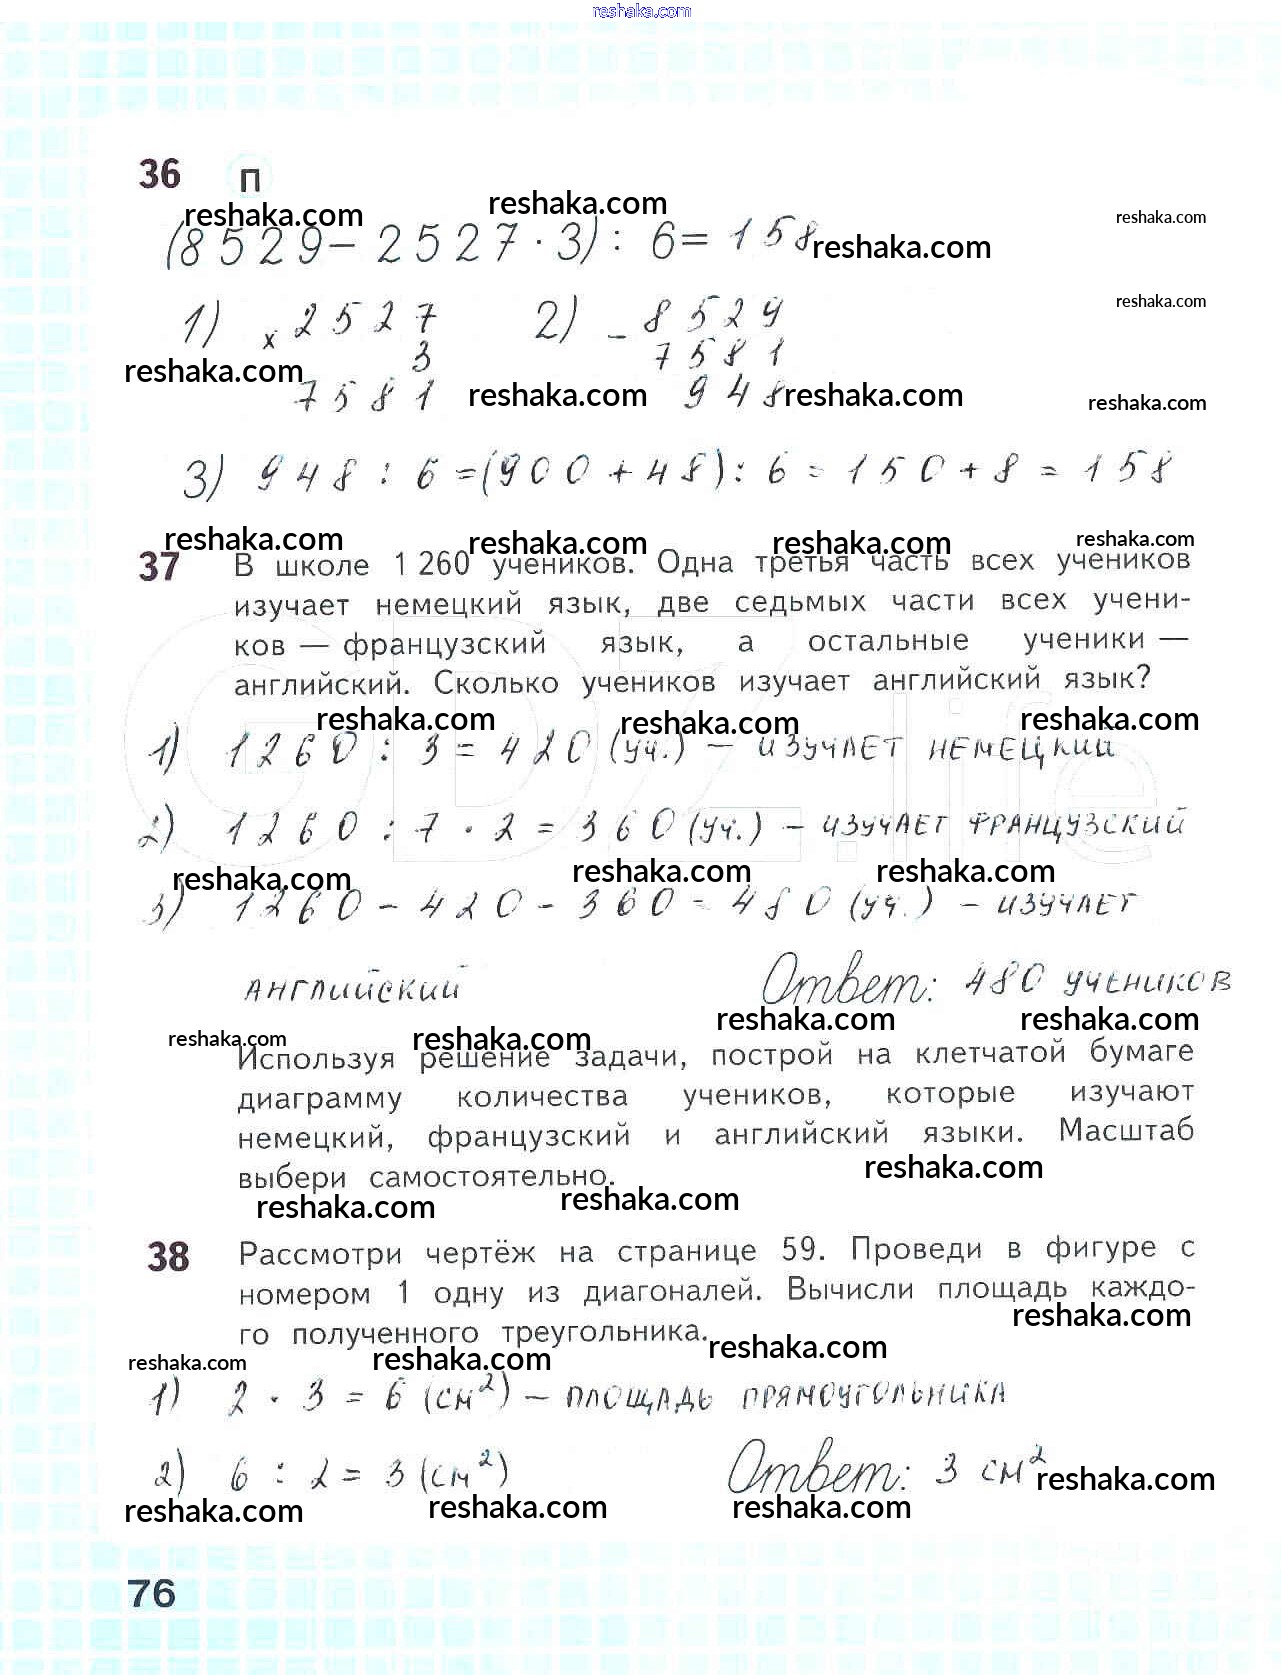 reshaka.com
36 П
reshaka.com reshaka.com reshaka.com
(8529 − 2527 · 3) : 6 = 158 reshaka.com
1) × 2527 2) − 8529 reshaka.com
3 7581
reshaka.com
7581 reshaka.com 948 reshaka.com reshaka.com
3) 948 : 6 = (900 + 48) : 6 = 150 + 8 = 158
reshaka.com reshaka.com reshaka.com reshaka.com
37 В школе 1 260 учеников. Одна третья часть всех учеников
изучает немецкий язык, две седьмых части всех учени-
ков — французский язык, а остальные ученики —
английский. Сколько учеников изучает английский язык?
reshaka.com reshaka.com reshaka.com
1) 1260 : 3 = 420 (уч.) − ИЗУЧАЕТ НЕМЕЦКИЙ
2) 1260 : 7 · 2 = 360 (уч.) − ИЗУЧАЕТ ФРАНЦУЗСКИЙ
reshaka.com reshaka.com reshaka.com
3) 1260 − 420 − 360 = 480 (уч.) − ИЗУЧАЕТ
АНГЛИЙСКИЙ Ответ: 480 УЧЕНИКОВ
reshaka.com reshaka.com reshaka.com reshaka.com
Используя решение задачи, построй на клетчатой бумаге
диаграмму количества учеников, которые изучают
немецкий, французский и английский языки. Масштаб
выбери самостоятельно. reshaka.com
reshaka.com reshaka.com
38 Рассмотри чертёж на странице 59. Проведи в фигуре с
номером 1 одну из диагоналей. Вычисли площадь каждо-
го полученного треугольника. reshaka.com
reshaka.com reshaka.com reshaka.com
1) 2 · 3 = 6 (см²) − ПЛОЩАДЬ ПРЯМОУГОЛЬНИКА
2) 6 : 2 = 3 (см²) Ответ: 3 см² reshaka.com
reshaka.com reshaka.com reshaka.com
76
GDZ.life